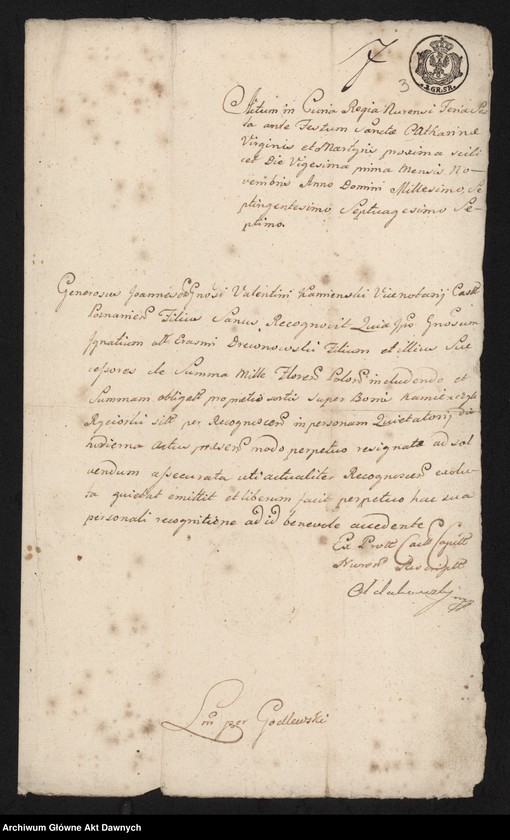 3
4. GR. SR.
Actum in Curia Regia Nurensi Feria Sex-
ta ante Festum Sanctæ Catharinæ
Virginis et Martyris proxima scili
cet Die Vigesima prima Mensis No-
vembris Anno Domini Millesimo Se
ptingentesimo Septuagesimo Se-
ptimo.
Generosus Joannes Gnosi Valentini Kamienski
Filius Sanus, Recognovit Quia Ipse Gnosum
Ignatium olim Erasmi Drewnowski Filium et illius Suc
cessores de Summa Mille Floren Polon includendo et
Summam obligatt propriæ sortis Super Bonis
per Recognoscen in personam Quietatorij di
hodierna Actus præsen modo perpetuo resignatæ ad sol
vendum assecurata uti actualiter Recognoscen exolu-
ta quietat emittit et liberum facit perpetuo hac sua
personali recognitione ad id benevole accedente
Ex Prott Castt Capitt
Nuren
Lm per Godlewski
Archiwum Główne Akt Dawnych